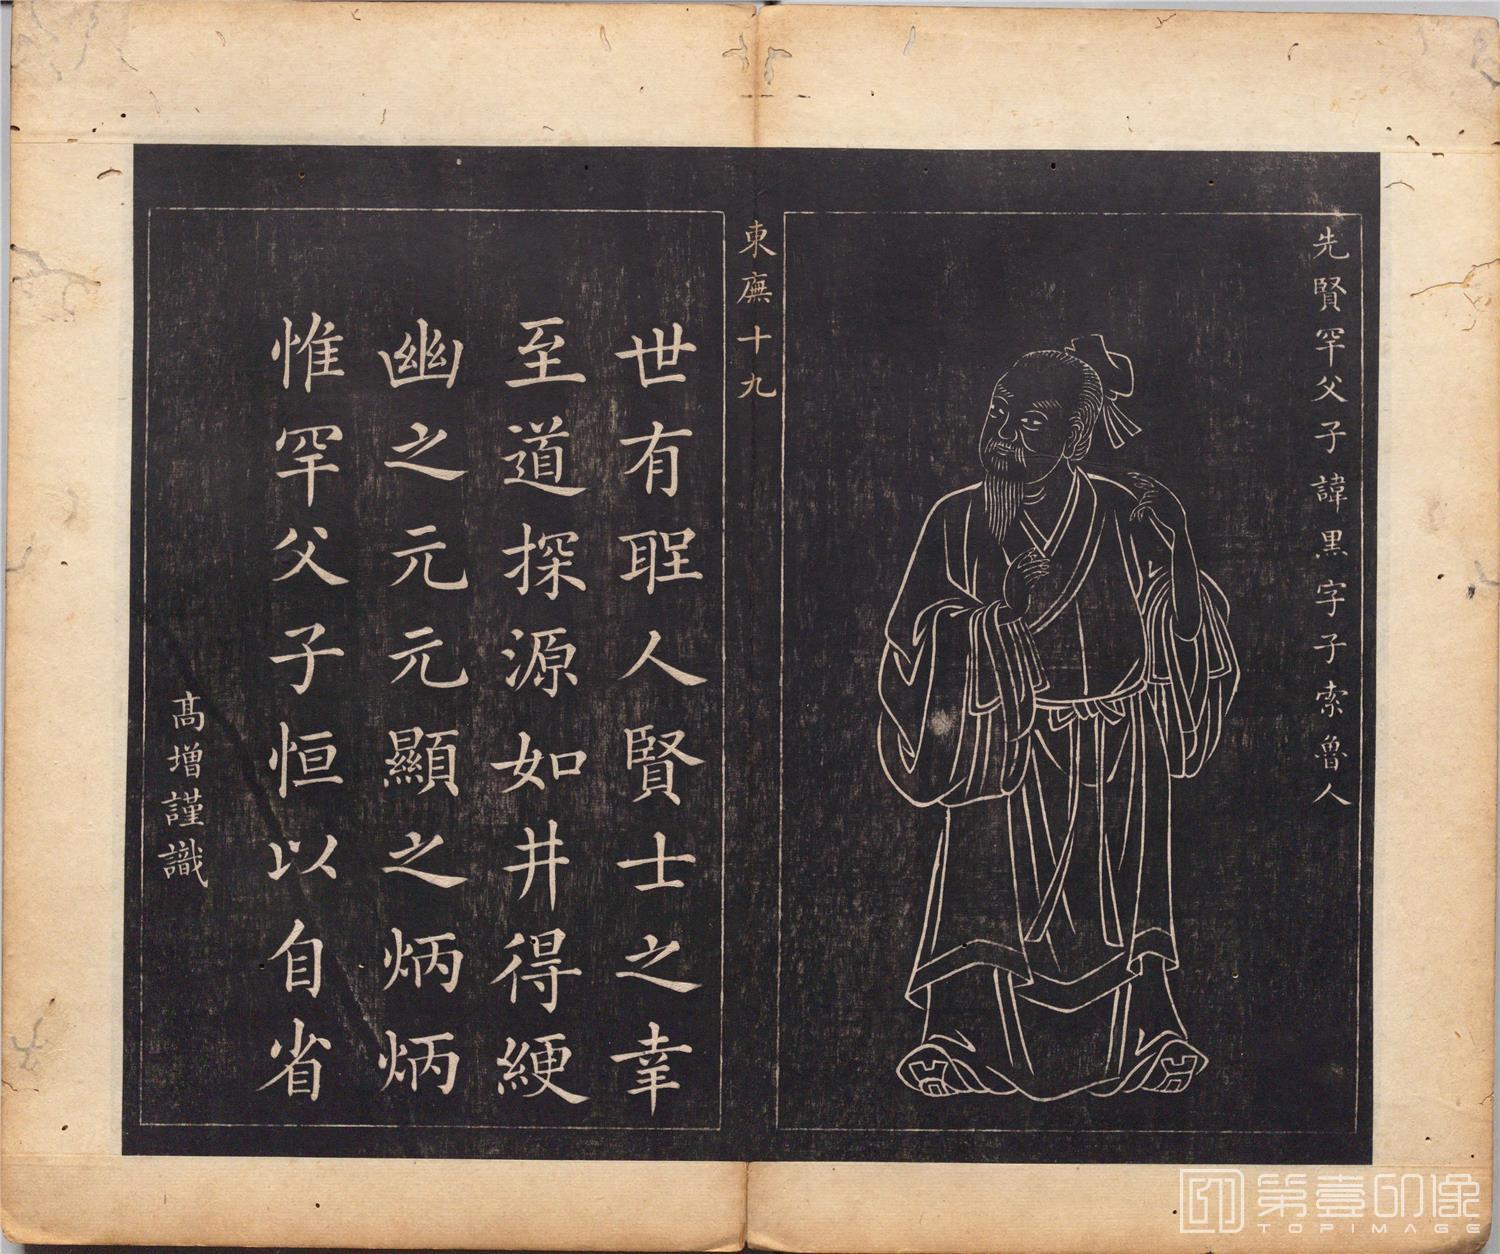 先賢罕父子諱黒字子索魯人
東廡十九
世有聖人賢士之幸
至道探源如井得綆
幽之元元顯之炳炳
惟罕父子恒以自省
高增謹識
第壹印像
TOPIMAGE